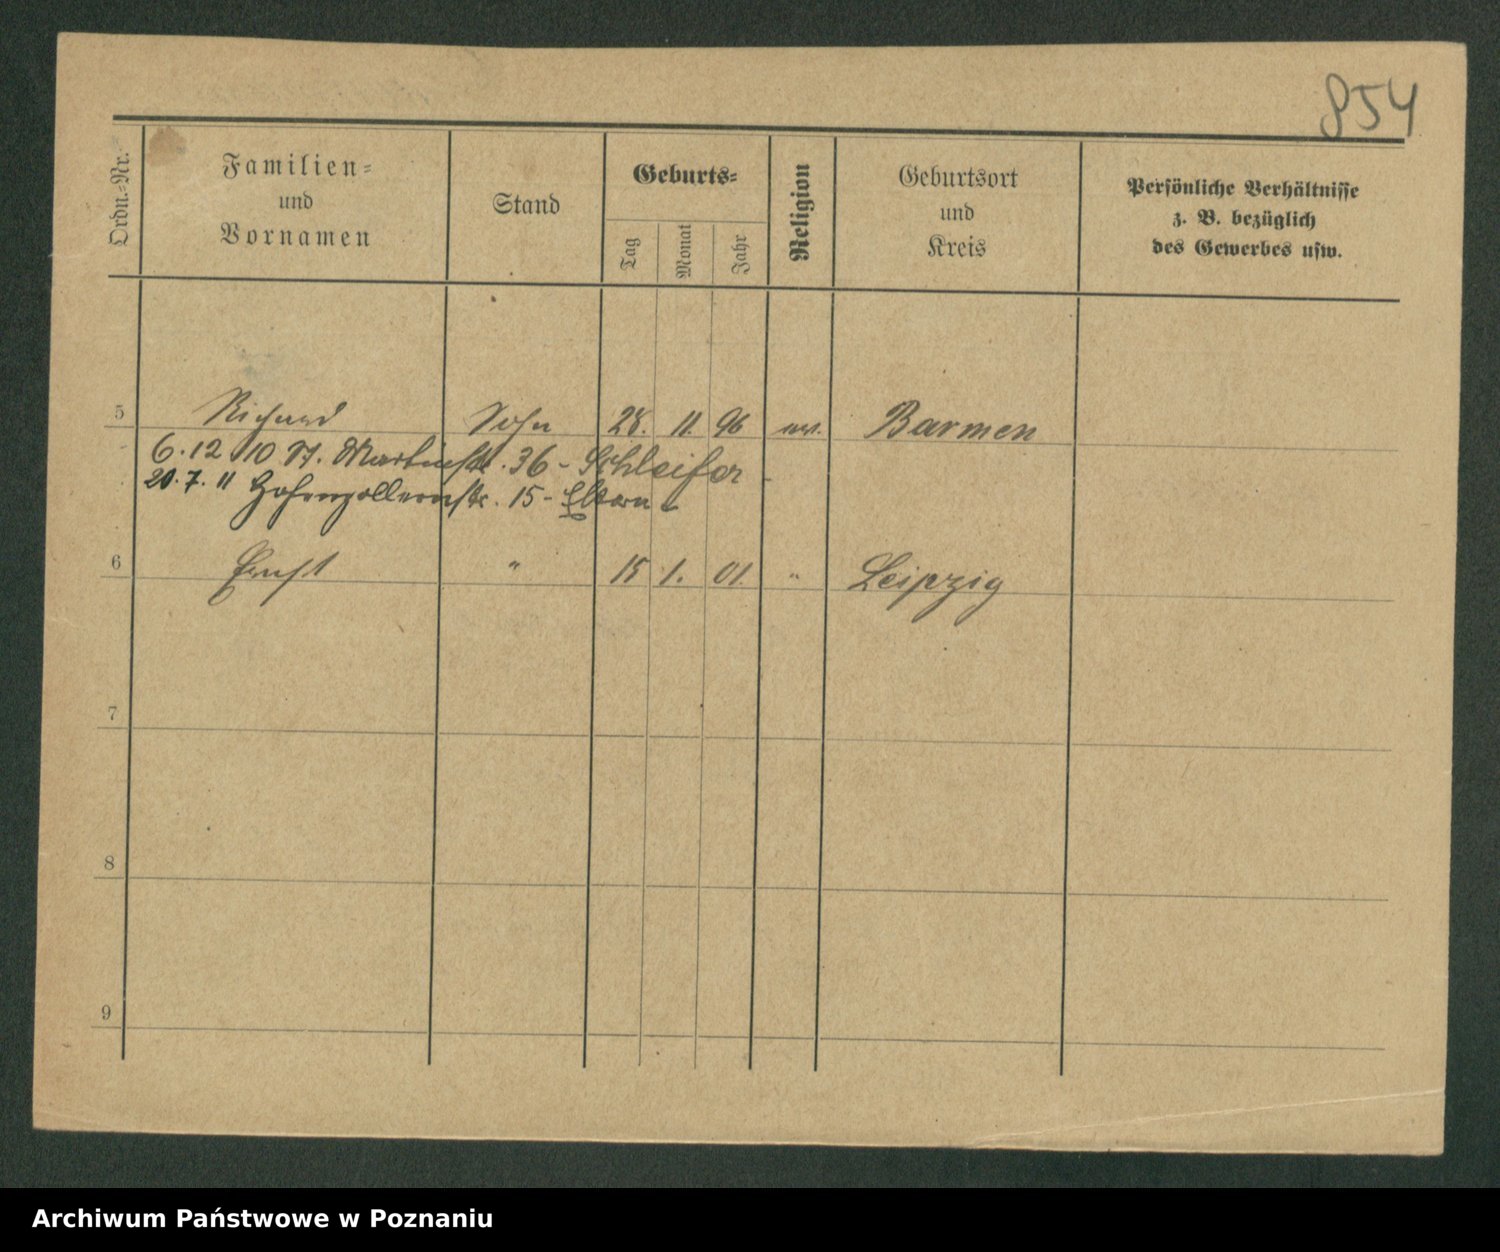 854
Ordn.=Nr.
Familien=
und
Vornamen
Stand
Geburts=
Tag
Monat
Jahr
Religion
Geburtsort
und
Kreis
Persönliche Verhältnisse
z. B. bezüglich
des Gewerbes usw.
5 Richard Sohn 28. 11. 96 ev. Barmen
6. 12 10 St. Martinstr. 36 - Schleifer -
20. 7. 11 Hohenzollernstr. 15 - Eltern
6 Ernst " 15 1. 01. " Leipzig
7
8
9
Archiwum Państwowe w Poznaniu